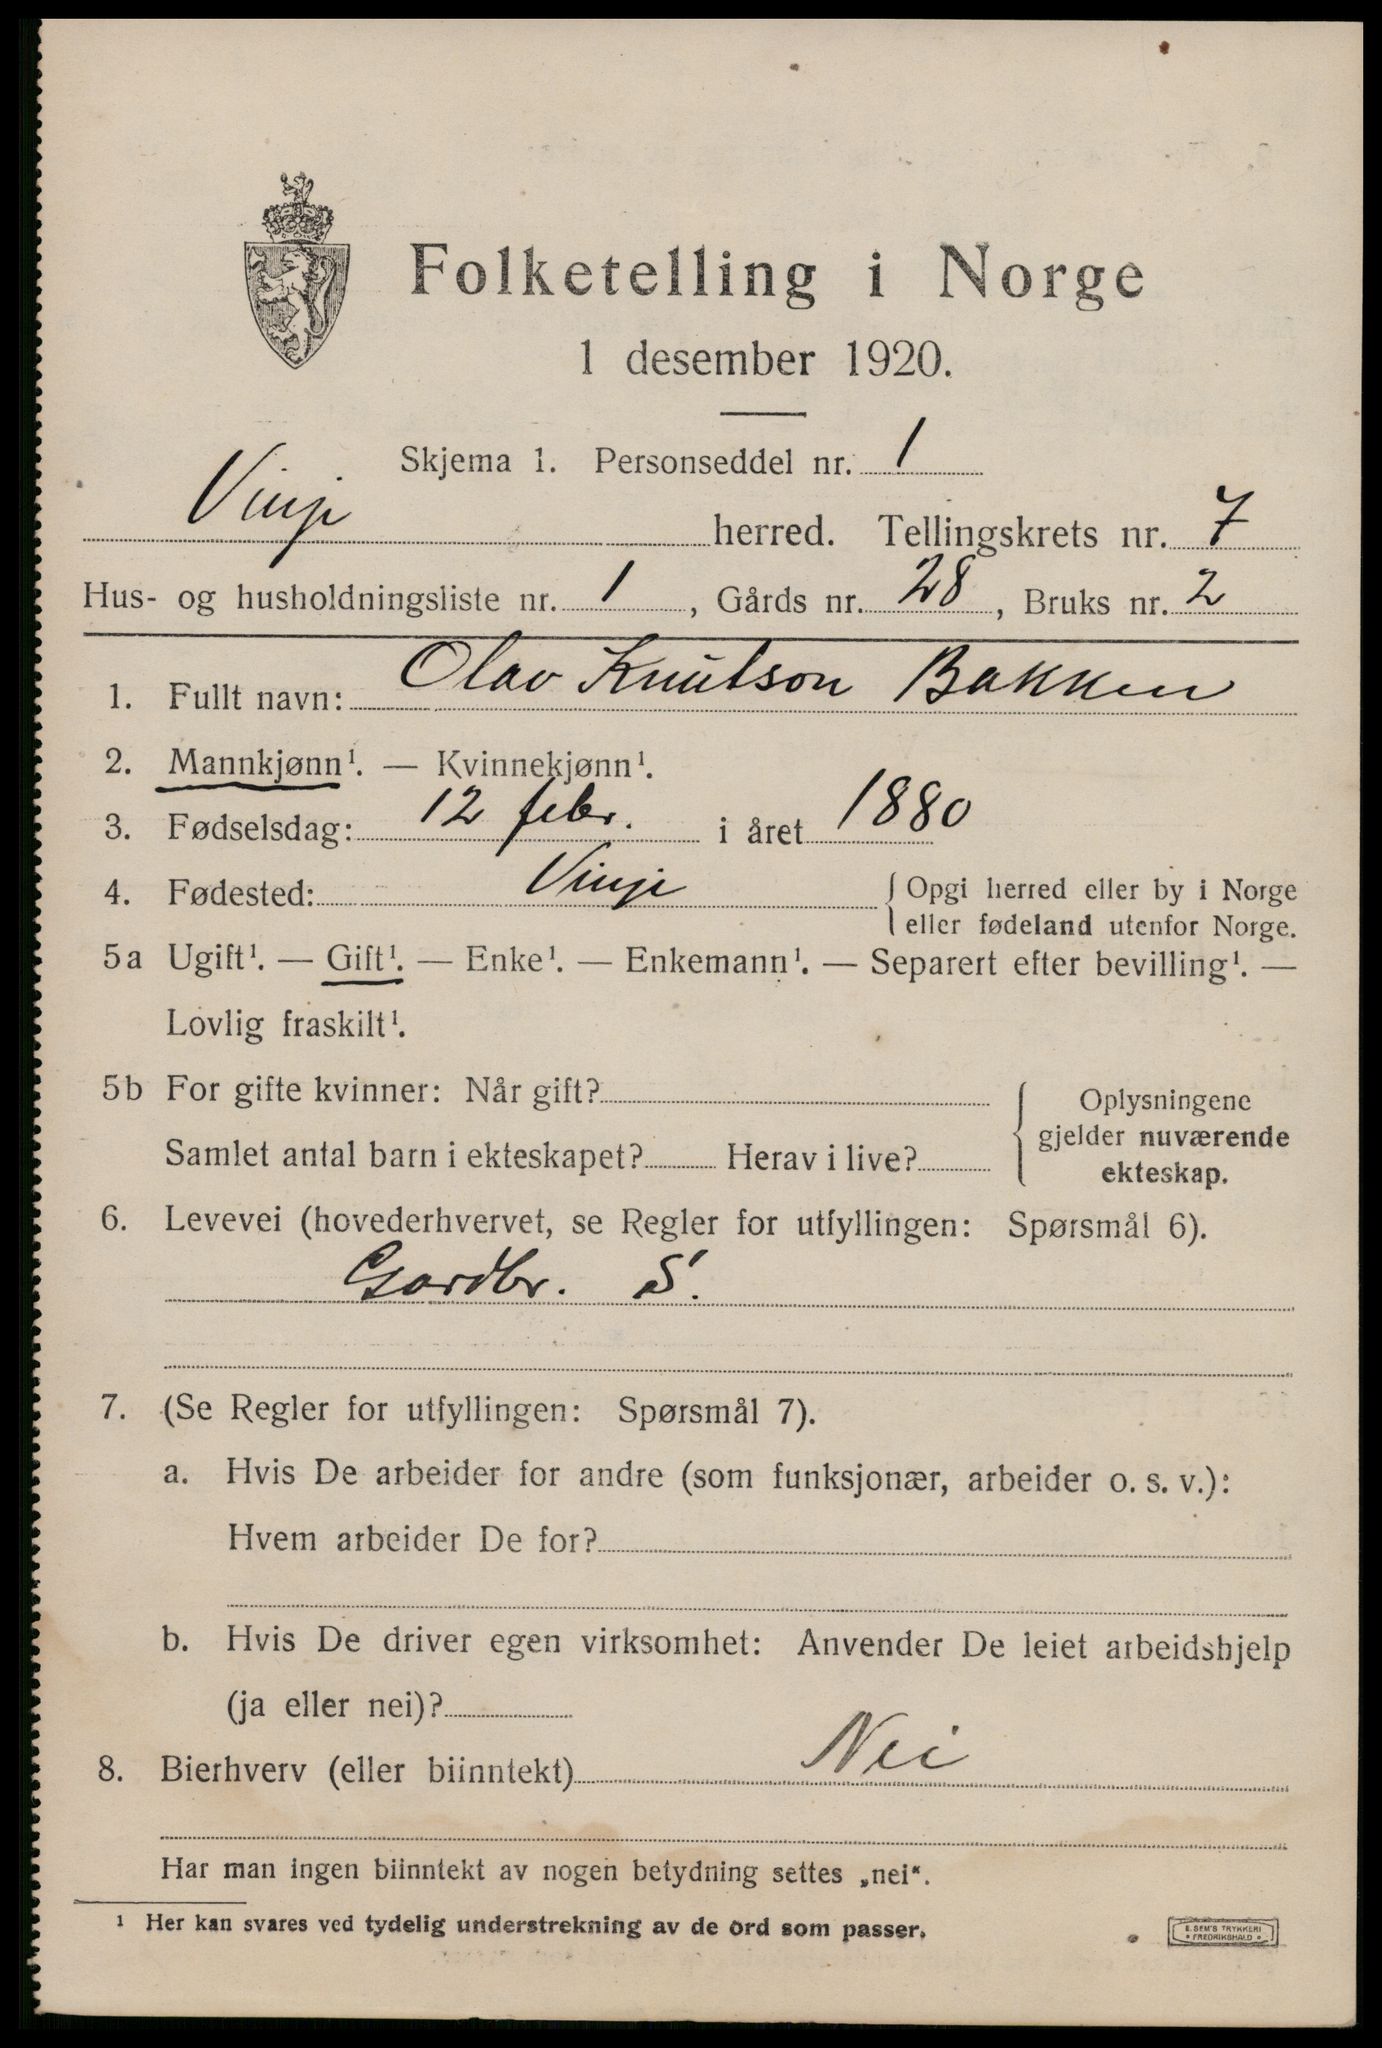 Folketelling i Norge
1 desember 1920.
Skjema 1. Personseddel nr. 1
Vinje herred. Tellingskrets nr. 7
Hus- og husholdningsliste nr. 1, Gårds nr. 28, Bruks nr. 2
1. Fullt navn: Olav Knutson Bakken
2. Mannkjønn¹. — Kvinnekjønn¹.
3. Fødselsdag: 12 febr. i året 1880
4. Fødested: Vinje { Opgi herred eller by i Norge
eller fødeland utenfor Norge.
5a Ugift¹. — Gift¹. — Enke¹. — Enkemann¹. — Separert efter bevilling¹. —
Lovlig fraskilt¹.
5b For gifte kvinner: Når gift?
Samlet antal barn i ekteskapet? Herav i live?
{ Oplysningene
gjelder nuværende
ekteskap.
6. Levevei (hovederhvervet, se Regler for utfyllingen: Spørsmål 6).
Gardbr. S.
7. (Se Regler for utfyllingen: Spørsmål 7).
a. Hvis De arbeider for andre (som funksjonær, arbeider o. s. v.):
Hvem arbeider De for?
b. Hvis De driver egen virksomhet: Anvender De leiet arbeidshjelp
(ja eller nei)?
8. Bierhverv (eller biinntekt) Nei
Har man ingen biinntekt av nogen betydning settes „nei“.
¹ Her kan svares ved tydelig understrekning av de ord som passer.
E. SEM'S TRYKKERI
• FREDRIKSHALD •